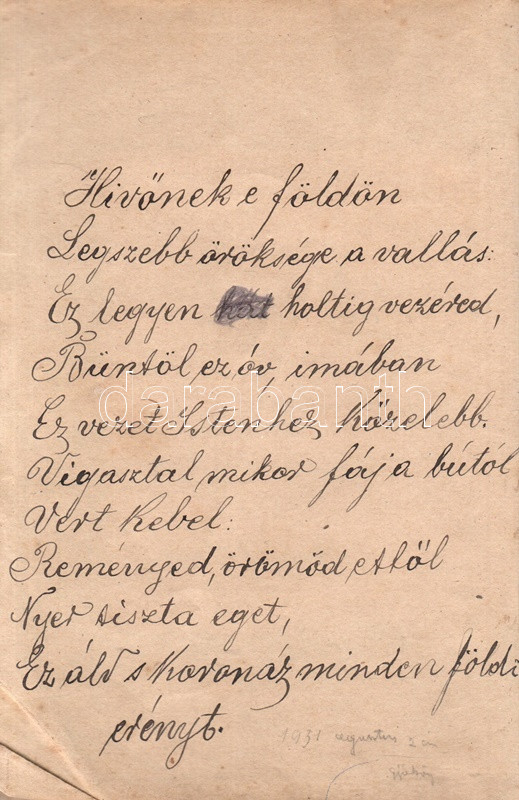 Hivőnek e földön
Legszebb öröksége a vallás:
Ez legyen holtig vezéred,
Büntől ez óv, imában
darabanth
Ez vezet Istenhez közelebb.
Vigasztal mikor fáj a bútól
Vert kebel:
Reményed, örömöd ettől
Nyer tiszta eget,
Ez áld s koronáz minden földi
erényt.
1931